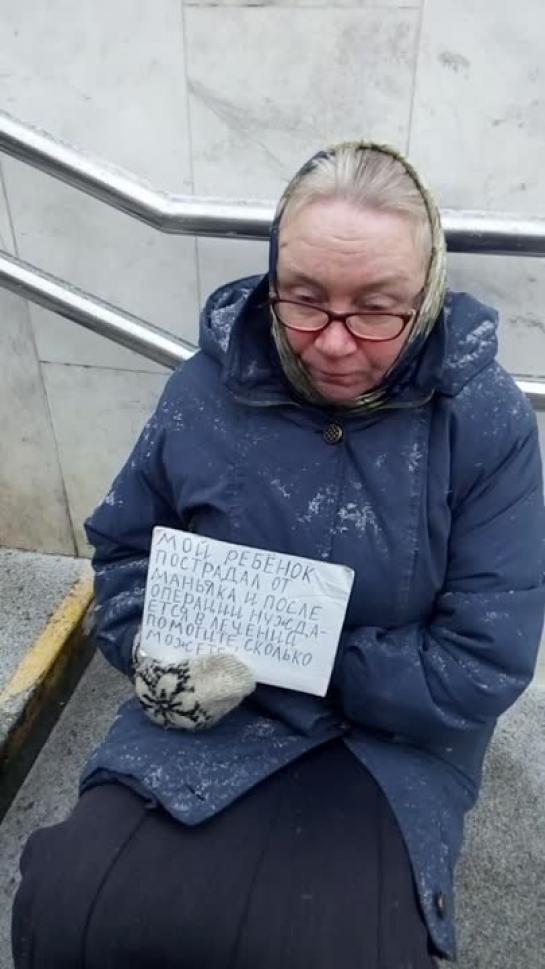 МОЙ РЕБЁНОК
ПОСТРАДАЛ ОТ
МАНЬЯКА И ПОСЛЕ
ОПЕРАЦИИ НУЖДА-
ЕТСЯ В ЛЕЧЕНИИ
ПОМОГИТЕ СКОЛЬКО
МОЖЕТЕ